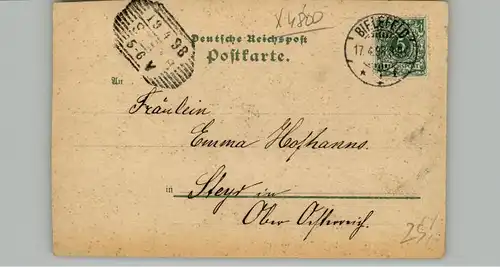 X 4800
Deutsche Reichspost
Postkarte.
BIELEFELD
17.4.98
19.4.98
5-6 A
An
Fräulein
Emma Hofhanns.
in Steyr in
Ober Österreich.
25,-